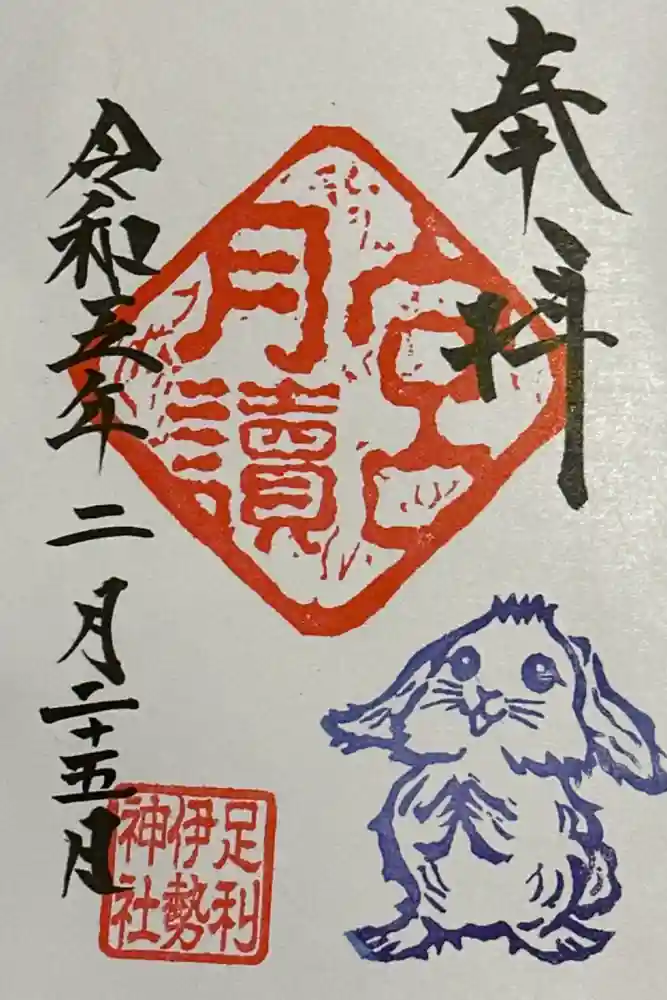 奉拝
月讀宮
令和五年二月二十五日
足利
伊勢
神社